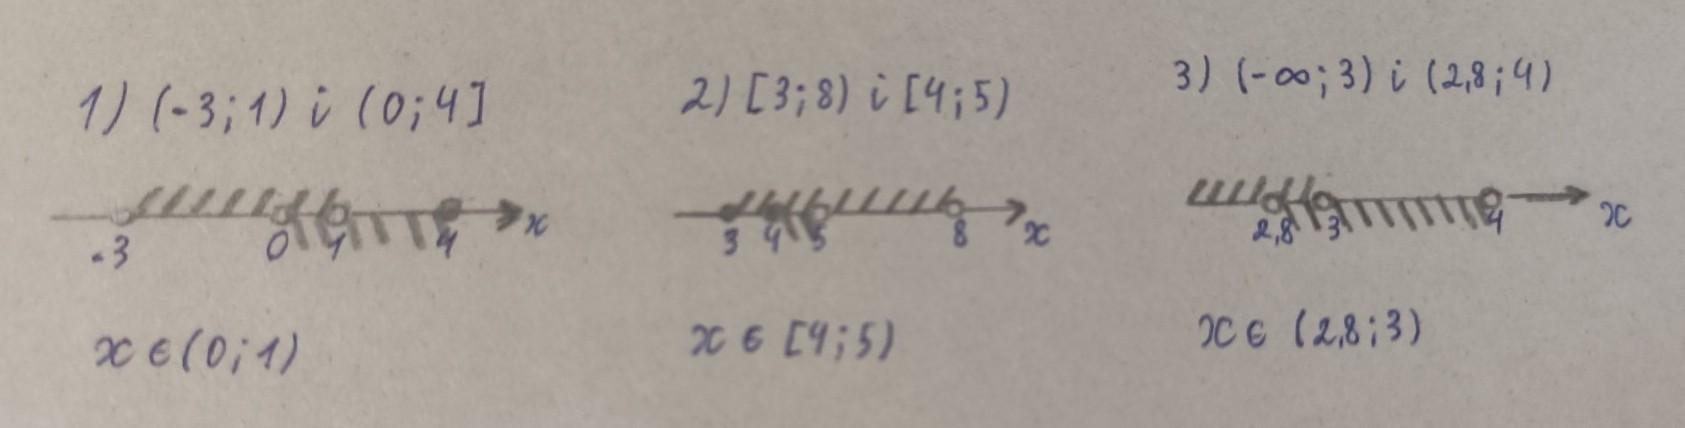 1) (-3; 1) і (0; 4]
-3 0 1 4 x
x ∈ (0; 1)
2) [3; 8) і [4; 5)
3 4 5 8 x
x ∈ [4; 5)
3) (-∞; 3) і (2,8; 4)
2,8 3 4 x
x ∈ (2,8; 3)